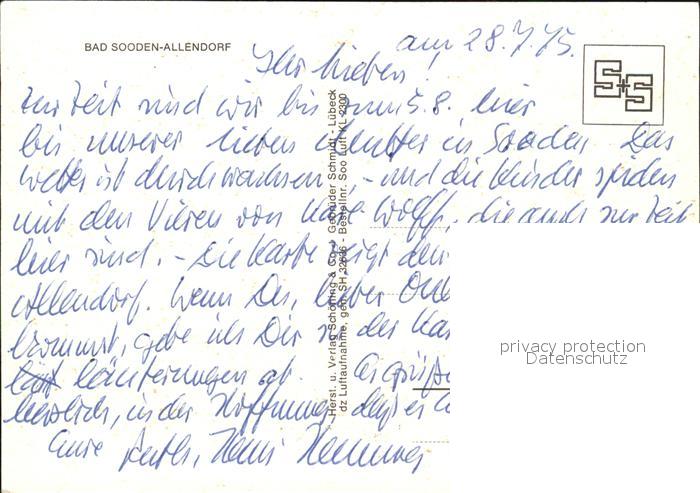 BAD SOODEN-ALLENDORF
am 28.7.75.
Ihr Lieben!
zur Zeit sind wir bis zum 5.8. hier
bis unserer lieben Mutter in Sooden. Das
Wetter ist durchwachsen, - und die Kinder spielen
mit den Vieren von Wolff, die auch zur Zeit
hier sind. - Die Karte zeigt den
Allendorf. Wenn Du, lieber
kommst, gebe ich Dir zu der Kar
läuterungen ab. Es grüßt
herzlich, in der Hoffnung, daß
Eure Hans Henning
Herst. u. Verlag Schöning & Co. + Gebrüder Schmidt - Lübeck
dz Luftaufnahme, gen. SH 32636 - Bestellnr. Soo Luft KL 2300
S+S
privacy protection
Datenschutz